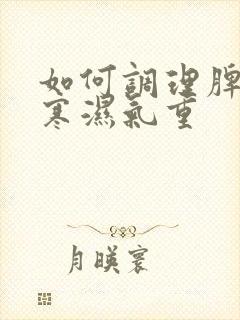 如何調理脾
寒濕氣重
月暎寰